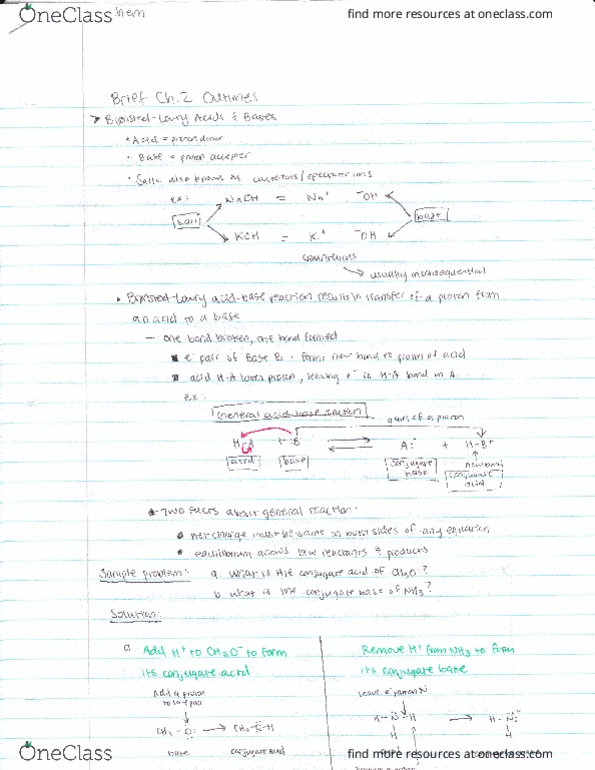 OneClass
hem
find more resources at oneclass.com
Brief Ch.2 Outlines
Brønsted-Lowry Acids & Bases
• Acid = proton donor
• Base = proton acceptor
• Salts also known as
ex:
NaOH = Na⁺ ⁻OH
salt base
KOH = K⁺ ⁻OH
counterions
usually inconsequential
• Brønsted-Lowry acid-base reaction results in transfer of a proton from
an acid to a base
— one bond broken, one bond formed
e⁻ pair of Base B: forms new bond to proton of acid
acid H-A loses proton, leaving e⁻ in H-A bond on A.
ex.
General acid-base reaction
gain of a proton
H-A + :B ⇌ A:⁻ + H-B⁺
acid base conjugate base new bond
conjugate acid
Two facts about general reaction:
• net charge must be same on both sides of any equation
• equilibrium arrows b/w reactants & products
Sample problem: a. What is the conjugate acid of CH₃O⁻?
b. what is the conjugate base of NH₃?
Solution:
a. Add H⁺ to CH₃O⁻ to form
its conjugate acid
Remove H⁺ from NH₃ to form
its conjugate base
Add a proton
to lone pair
leave e⁻ pair on N
CH₃-O:⁻ → CH₃-O-H
base conjugate acid
H-N-H → H-N:⁻
H H
OneClass
find more resources at oneclass.com